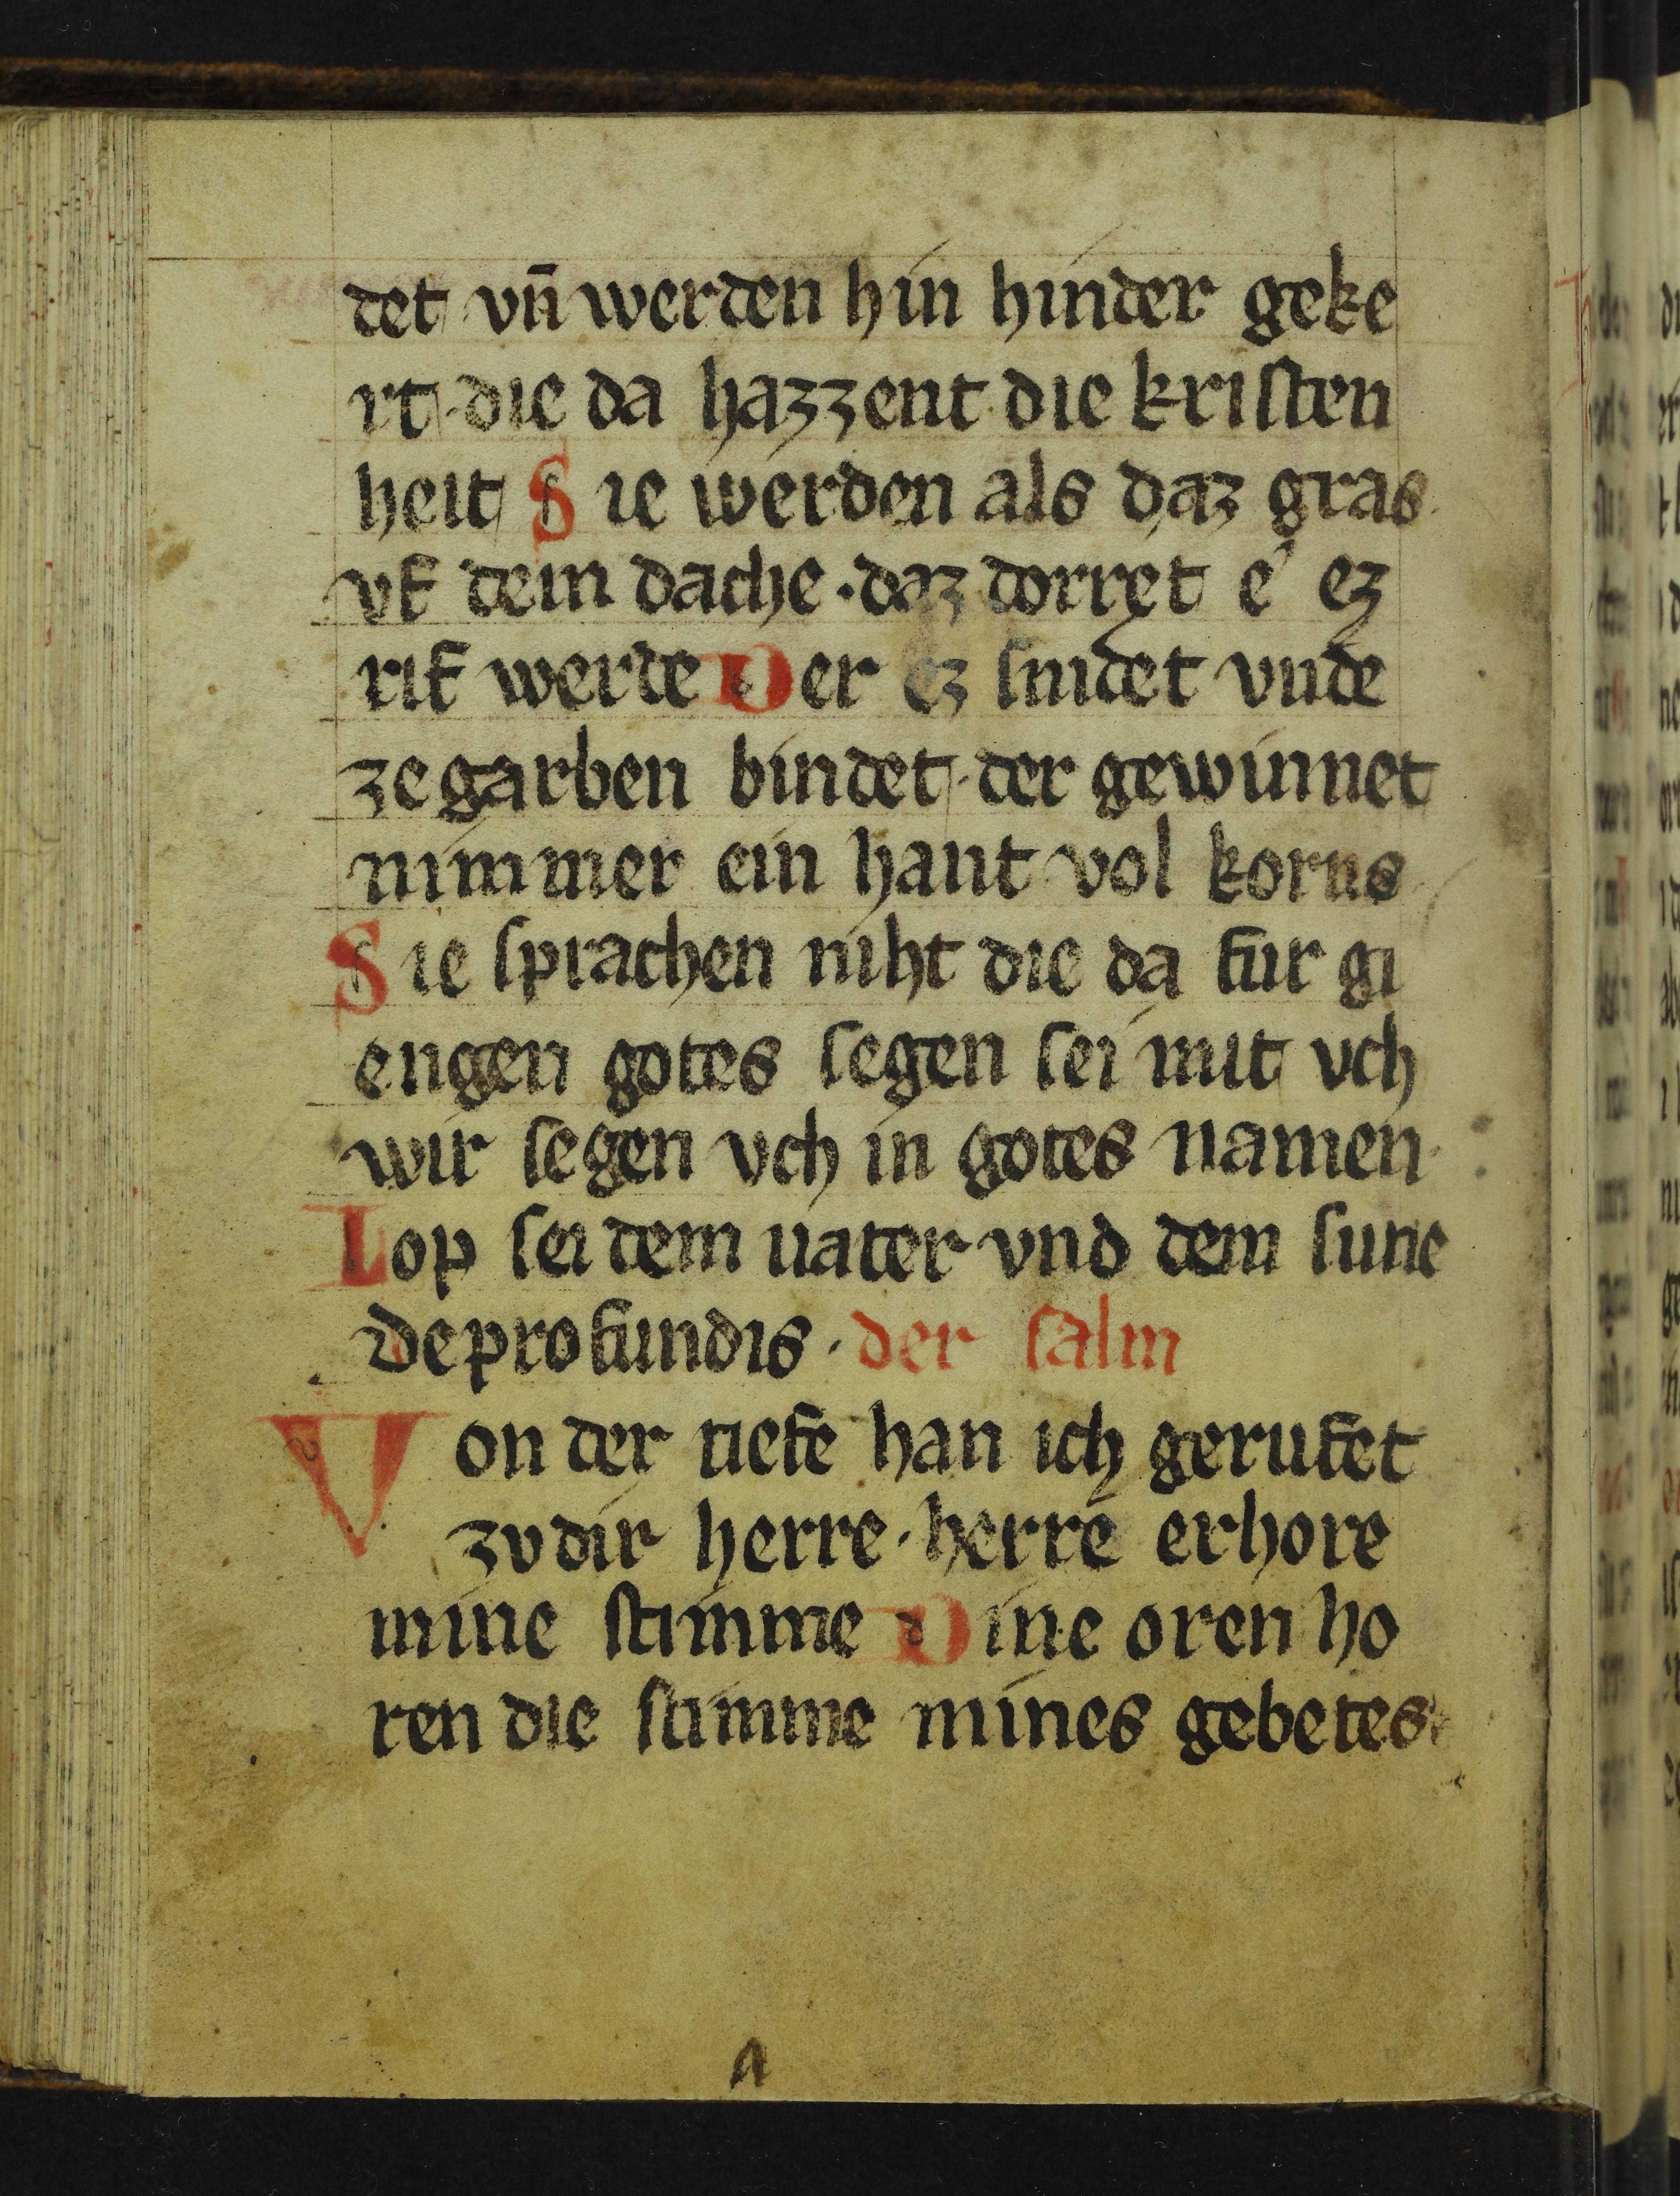 det vn̄ werden hin hinder geke
rt · die da hazzent die kriſten
heit S ie werden als daz gras
vf dem dache · daz dorret e ez
rif werde D er ez ſnidet vnde
ze garben bindet · der gewinnet
nimmer ein hant vol korns
S ie ſprachen niht die da fur gi
engen gotes ſegen ſei mit vch
wir ſegen vch in gotes namen
Lop ſei dem uater vnd dem ſune
De profundis · der ſalm
V on der tiefe han ich gerufet
zv dir herre · herre erhore
mine ſtimme D ine oren ho
ren die ſtimme mines gebetes